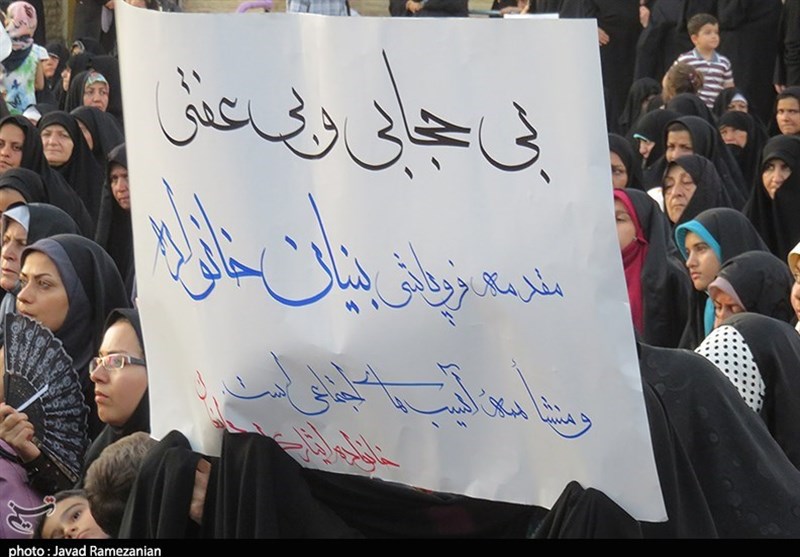 بی حجابی و بی عفتی
مقدمه فروپاشی بنیان خانواده
و منشأ همهٔ آسیب های اجتماعی است.
خانواده ایثارگران
تسنیم
photo : Javad Ramezanian